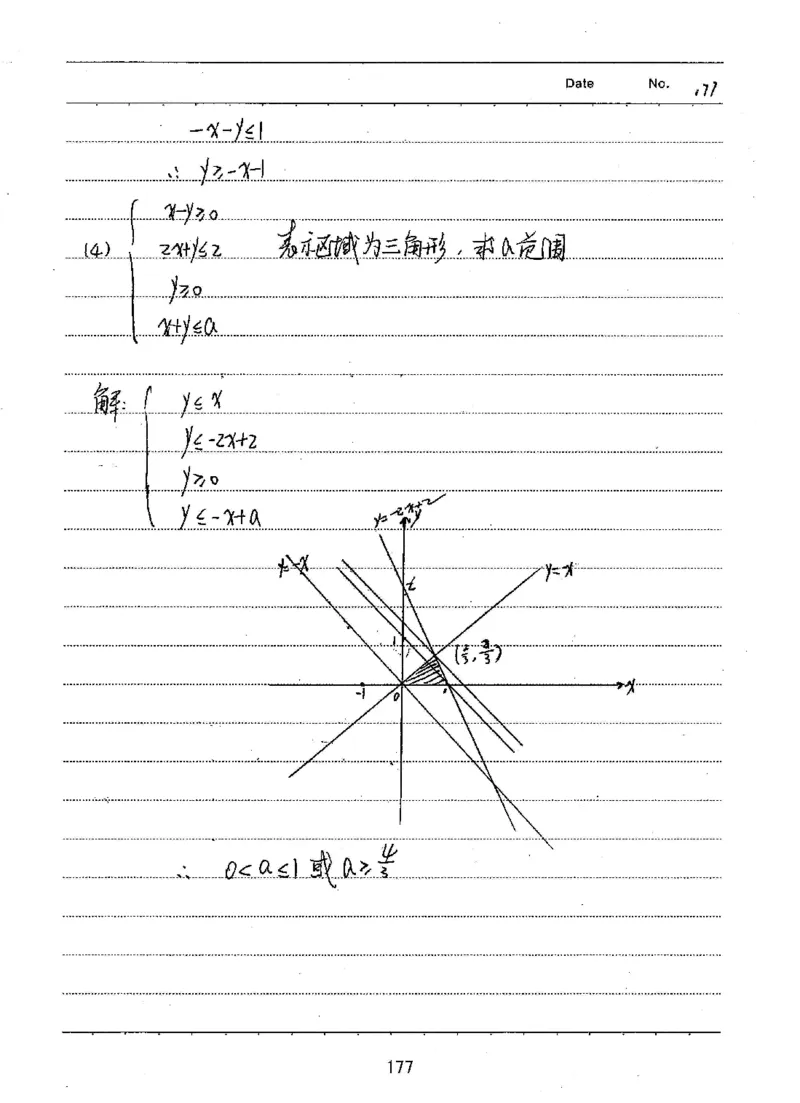 Date No. 177
-x-y≤1
∴ y≥-x-1
(4) { x-y≥0
2x+y≤2 表示区域为三角形，求a范围
y≥0
x+y≤a
解: { y≤x
y≤-2x+2
y≥0
y≤-x+a
y=-2x+2
y
y=-x
y=x
2
1
(2/3, 2/3)
-1 0 1 x
∴ 0<a≤1 或 a≥4/3
177